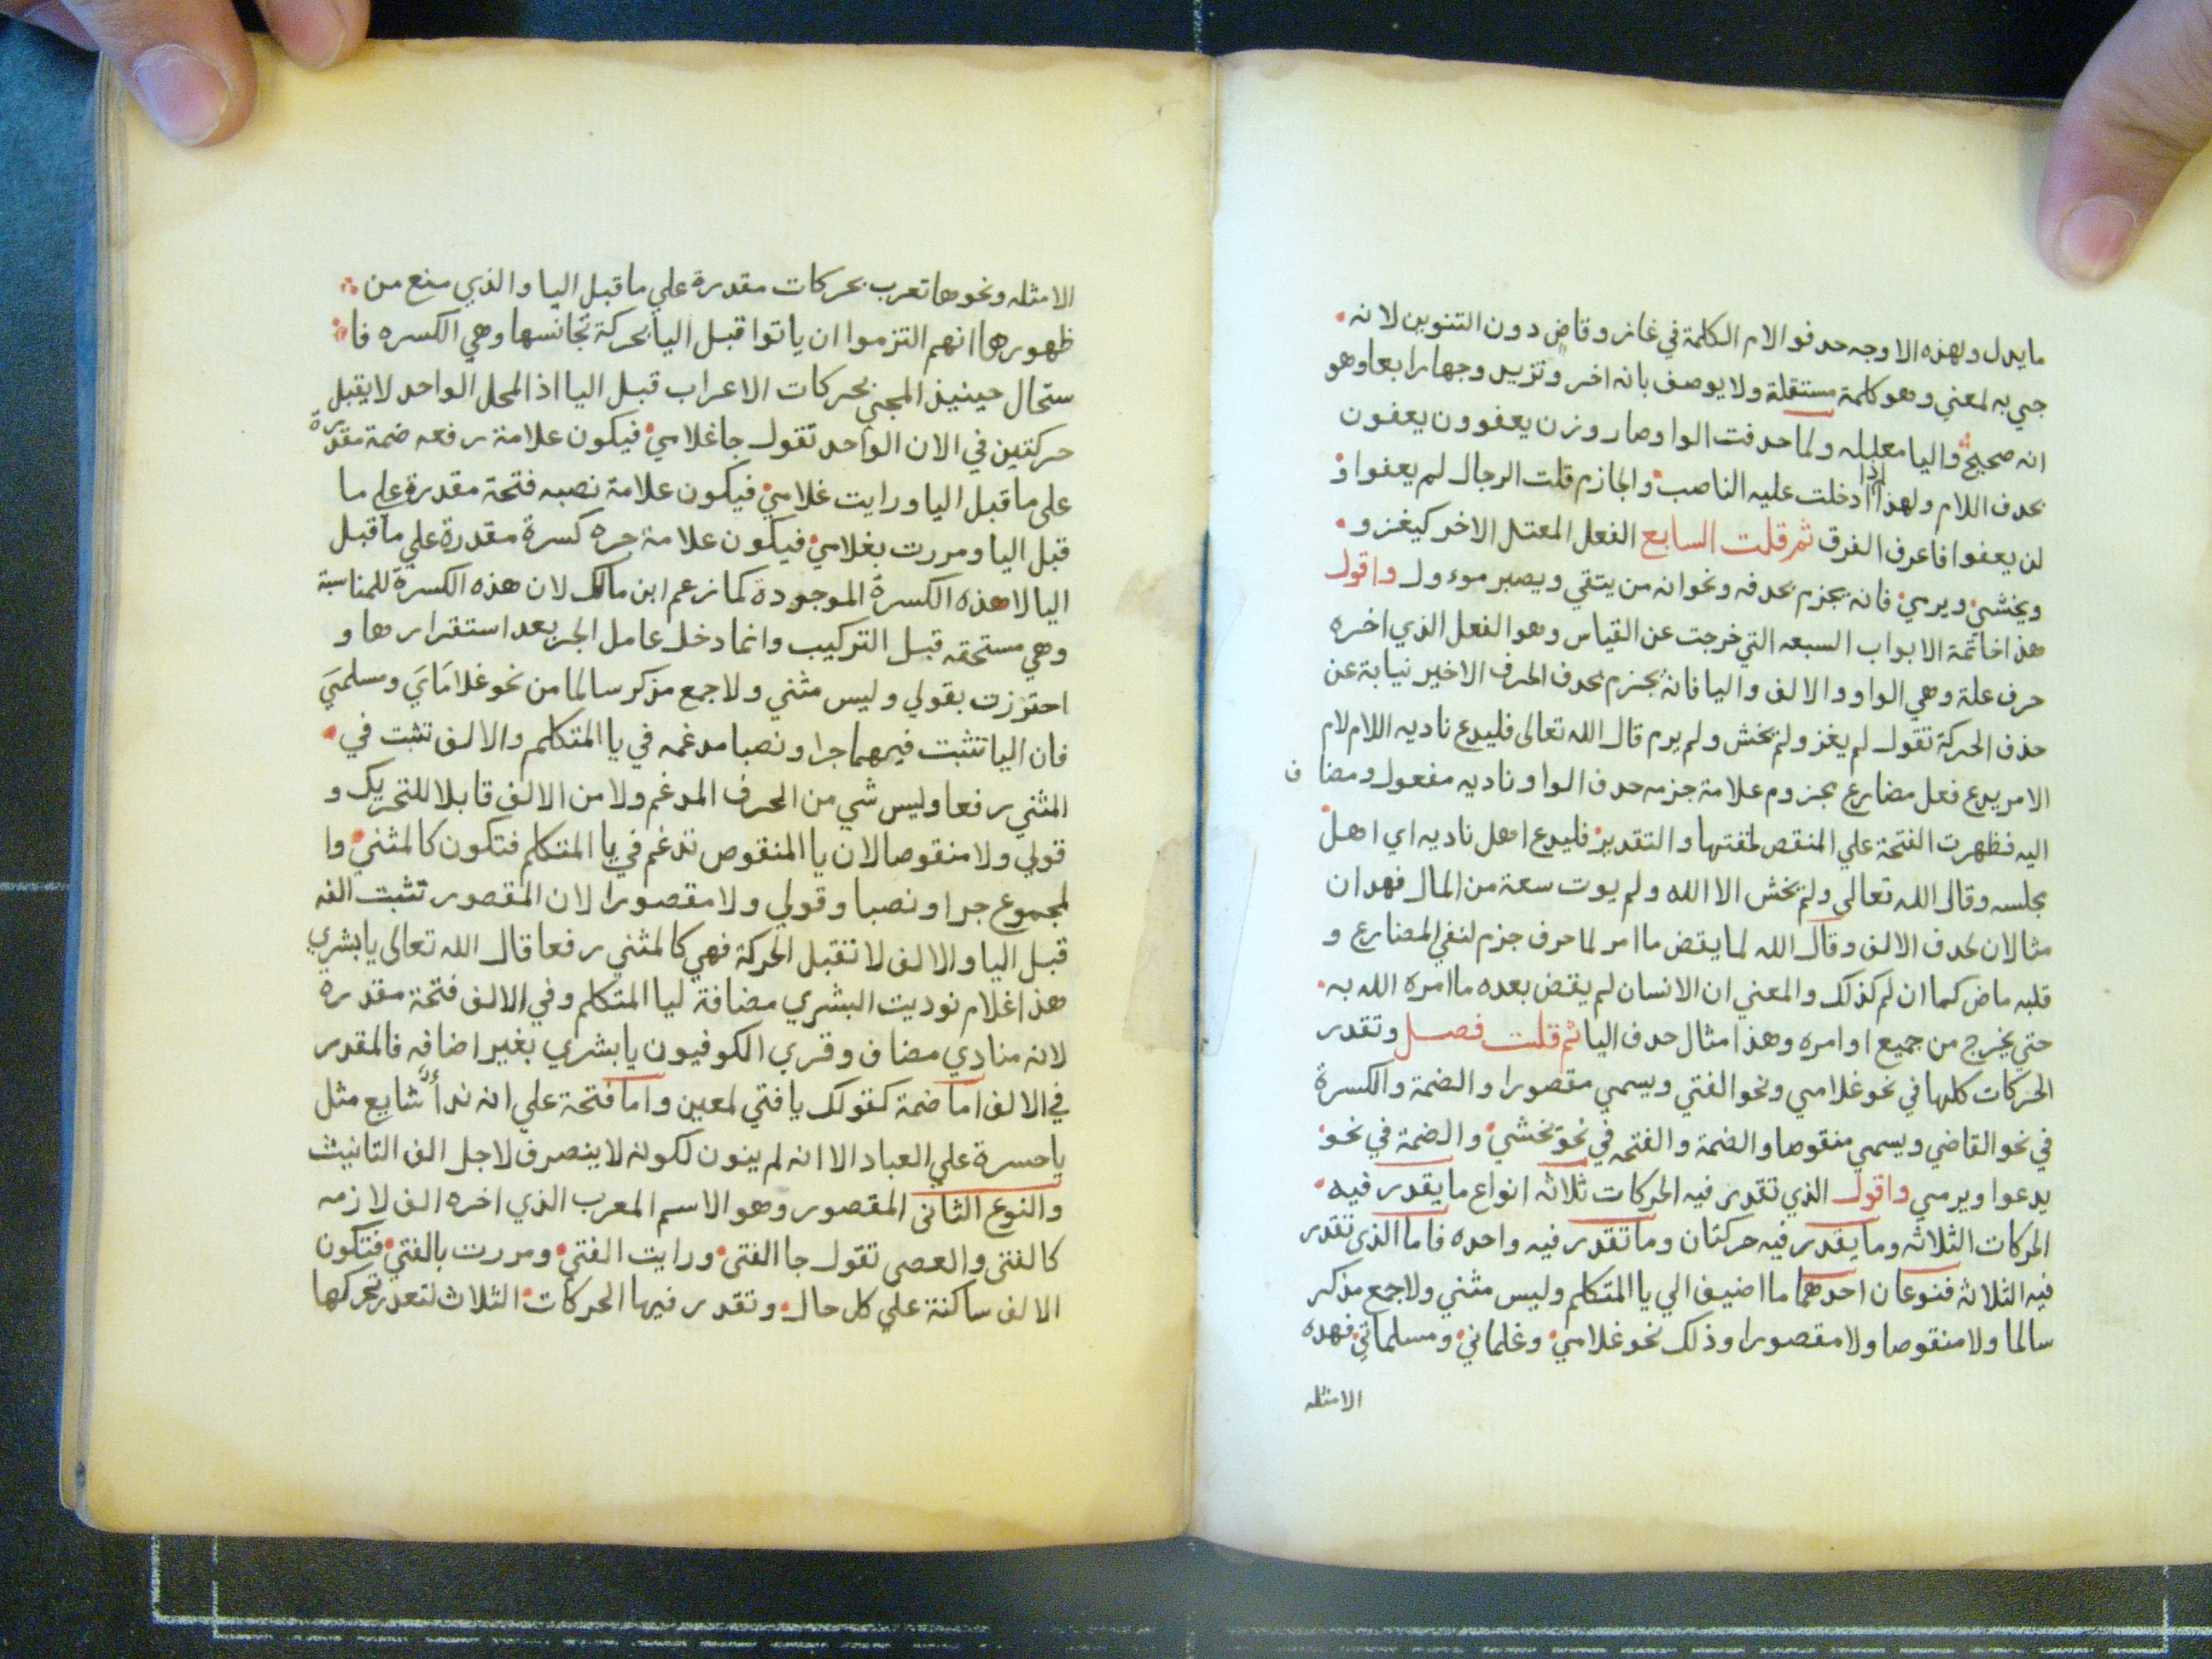 ما يدل ولهذه الاوجه حدفوا الام الكلمة في غاز وقاض دون التنوين لانه
جي به لمعني وهو كلمة مستقلة ولا يوصف بانه اخر وتزيد وجها رابعا وهو
انه صحيح واليا معليله ولما حدفت الواو صار وزن يعفوون يعفون
بحدف اللام ولهذا اذا دخلت عليه الناصب والجازم قلت الرجال لم يعفوا و
لن يعفوا فاعرف الفرق ثم قلت السابع الفعل المعتل الاخر كيغزو
ويخشي ويرمي فانه يجزم بحدفه ونحو انه من يتقي ويصبر موءول واقول
هذا خاتمة الابواب السبعه التي خرجت عن القياس وهو الفعل الذي اخره
حرف علة وهي الواو والالف واليا فانه يجزم بحدف الحرف الاخير نيابة عن
حذف الحركة تقول لم يغز ولم يخش ولم يرم قال الله تعالى فليدع ناديه اللام لام
الامر يدع فعل مضارع مجزوم علامة جزمه حدف الواو ناديه مفعول ومضاف
اليه فظهرت الفتحة علي المنقص لخفتها والتقدير فليدع اهل ناديه اي اهل
مجلسه وقال الله تعالي ولم يخش الا الله ولم يوت سعة من المال فهدان
مثالان لحدف الالف وقال الله لما يقض ما امر لما حرف جزم لنفي المضارع و
قلبه ماض كما ان لم كذلك والمعني ان الانسان لم يقض بعده ما امره الله به
حتي يخرج من جميع اوامره وهذا مثال حدف اليا ثم قلت فصل وتقدر
الحركات كلها في نحو غلامي ونحو الفتي ويسمي مقصورا والضمة والكسرة
في نحو القاضي ويسمي منقوصا والضمة والفتحه في نحو يخشي والضمة في نحو
يدعوا ويرمي واقول الذي تقدر فيه الحركات ثلاثه انواع ما يقدر فيه
الحركات الثلاثه وما يقدر فيه حركتان وما تقدر فيه واحده فاما الذي تقدر
فيه الثلاثه فنوعان احدهما ما اضيف الي يا المتكلم وليس مثني ولا جمع مذكر
سالما ولا منقوصا ولا مقصورا وذلك نحو غلامي وغلماني ومسلماتي فهده
الامثله
الامثله ونحوها تعرب بحركات مقدرة علي ما قبل اليا والذي منع من
ظهورها انهم التزموا ان ياتوا قبل اليا بحركة تجانسها وهي الكسره فا
ستحال حينيذ المجئ بحركات الاعراب قبل اليا اذ المحل الواحد لا يقبل
حركتين في الان الواحد تقول جا غلامي فيكون علامة رفعه ضمة مقدرة
على ما قبل اليا ورايت غلامي فيكون علامة نصبه فتحة مقدرة علي ما
قبل اليا ومررت بغلامي فيكون علامة جره كسرة مقدرة علي ما قبل
اليا لا هذه الكسرة الموجودة كما زعم ابن مالك لان هذه الكسرة للمناسبة
وهي مستحقه قبل التركيب وانما دخل عامل الجر بعد استقرارها و
احترزت بقولي وليس مثني ولا جمع مذكر سالما من نحو غلاماي ومسلمي
فان اليا تثبت فيهما جرا ونصبا مدغمه في يا المتكلم والالف تثبت في
المثني رفعا وليس شي من الحرف المدغم ولا من الالف قابلا للتحريك و
قولي ولا منقوصا لان يا المنقوص تدغم في يا المتكلم فتكون كالمثني وا
لمجموع جرا ونصبا وقولي ولا مقصورا لان المقصور تثبت الفه
قبل اليا والالف لا تقبل الحركة فهي كالمثني رفعا قال الله تعالى يا بشري
هذا غلام نوديت البشري مضافة ليا المتكلم وفي الالف فتحة مقدره
لانه منادي مضاف وقري الكوفيون يا بشري بغير اضافه فالمقدر
في الالف اما ضمة كقولك يا فتي لمعين واما فتحة علي انه ندا شايع مثل
يا حسرة علي العباد الا انه لم ينون لكونه لا ينصرف لاجل الف التانيث
والنوع الثاني المقصور وهو الاسم المعرب الذي اخره الف لازمه
كالفتى والعصى تقول جا الفتى ورايت الفتي ومررت بالفتي فتكون
الالف ساكنة علي كل حال وتقدر فيها الحركات الثلاث لتعدر تحركها